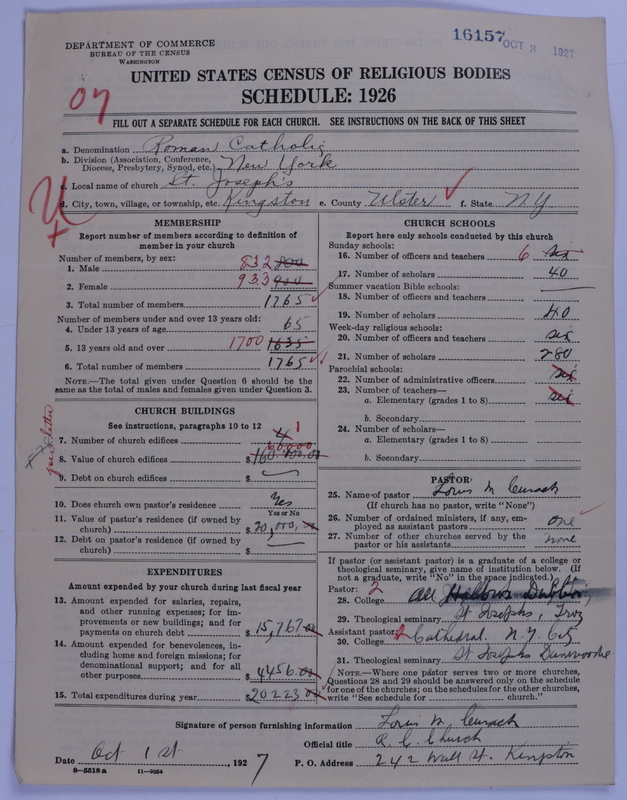 16157 OCT 3 1927
DEPARTMENT OF COMMERCE
BUREAU OF THE CENSUS
WASHINGTON
UNITED STATES CENSUS OF RELIGIOUS BODIES
SCHEDULE: 1926
07
FILL OUT A SEPARATE SCHEDULE FOR EACH CHURCH. SEE INSTRUCTIONS ON THE BACK OF THIS SHEET
a. Denomination Roman Catholic
b. Division (Association, Conference, Diocese, Presbytery, Synod, etc.) New York
c. Local name of church St. Joseph's
d. City, town, village, or township, etc. Kingston e. County Ulster f. State N.Y.
MEMBERSHIP
Report number of members according to definition of
member in your church
Number of members, by sex:
1. Male 832 800
2. Female 933 900
3. Total number of members 1765
Number of members under and over 13 years old:
4. Under 13 years of age 65
5. 13 years old and over 1700 1635
6. Total number of members 1765
NOTE.—The total given under Question 6 should be the
same as the total of males and females given under Question 3.
CHURCH BUILDINGS
See instructions, paragraphs 10 to 12
7. Number of church edifices 4 1
8. Value of church edifices $ 160,000.00 60000
per letter
9. Debt on church edifices $
10. Does church own pastor's residence? Yes
Yes or No
11. Value of pastor's residence (if owned by
church) $ 20,000,00
12. Debt on pastor's residence (if owned by
church) $
EXPENDITURES
Amount expended by your church during last fiscal year
13. Amount expended for salaries, repairs,
and other running expenses; for im-
provements or new buildings; and for
payments on church debt $ 15,767.00
14. Amount expended for benevolences, in-
cluding home and foreign missions; for
denominational support; and for all
other purposes $ 4456.00
15. Total expenditures during year $ 20223.00
CHURCH SCHOOLS
Report here only schools conducted by this church
Sunday schools:
16. Number of officers and teachers 6 six
17. Number of scholars 40
Summer vacation Bible schools:
18. Number of officers and teachers
19. Number of scholars 40
Week-day religious schools:
20. Number of officers and teachers six
21. Number of scholars 280
Parochial schools:
22. Number of administrative officers six
23. Number of teachers—
a. Elementary (grades 1 to 8) six
b. Secondary
24. Number of scholars—
a. Elementary (grades 1 to 8)
b. Secondary
PASTOR
25. Name of pastor Louis M Cusack
(If church has no pastor, write "None")
26. Number of ordained ministers, if any, em-
ployed as assistant pastors one
27. Number of other churches served by the
pastor or his assistants none
If pastor (or assistant pastor) is a graduate of a college or
theological seminary, give name of institution below. (If
not a graduate, write "No" in the space indicated.)
Pastor: 2
28. College All Hallows Dublin
29. Theological seminary St Josephs, Troy
Assistant pastor: 2
30. College Cathedral N.Y. City
31. Theological seminary St Josephs Dunwoodie
NOTE.—Where one pastor serves two or more churches,
Questions 28 and 29 should be answered only on the schedule
for one of the churches; on the schedules for the other churches,
write "See schedule for church."
Signature of person furnishing information Louis M Cusack
Official title R. C. Church
Date Oct 1st, 1927 P. O. Address 242 Wall St. Kingston
8—5518a 11—9054